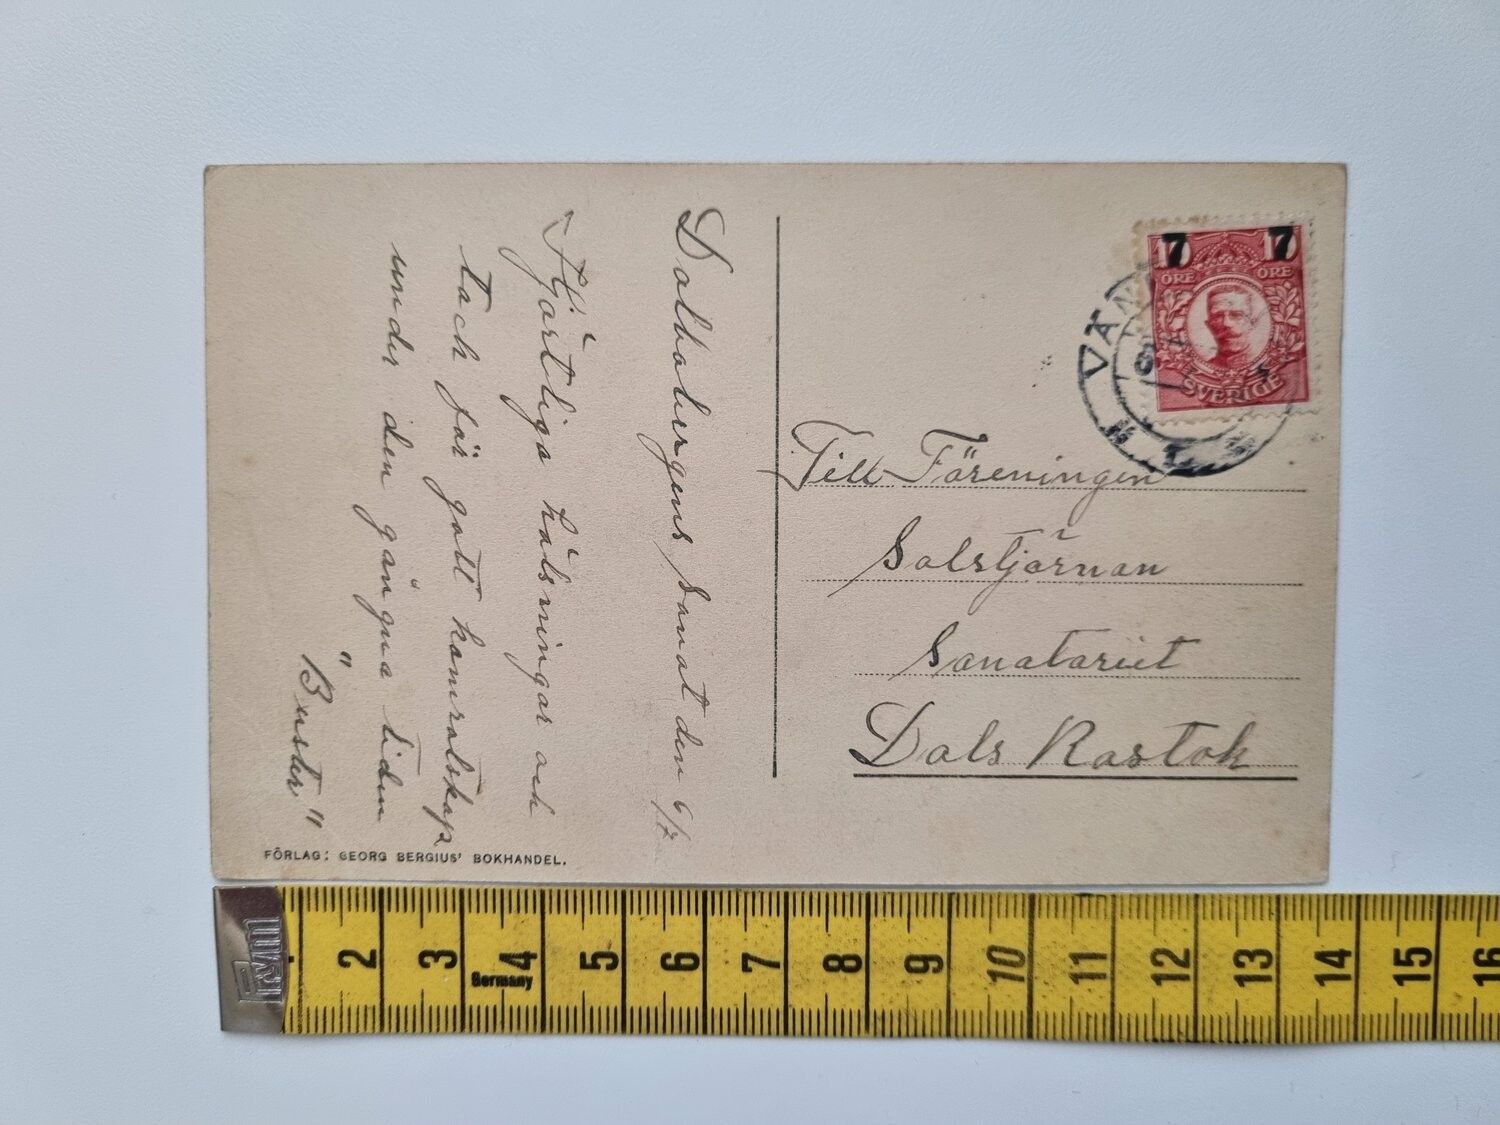 Dalbobergens Sanat den 6/7
Hjärtliga hälsningar och
tack för gott kamratskap
under den gångna tiden
"Buster"
FÖRLAG: GEORG BERGIUS' BOKHANDEL.
7 7
10 10
ÖRE ÖRE
SVERIGE
VÄN
Till Föreningen
Solstjärnan
Sanatoriet
Dals Rostok
2 3 4 5 6 7 8 9 10 11 12 13 14 15 16
Germany